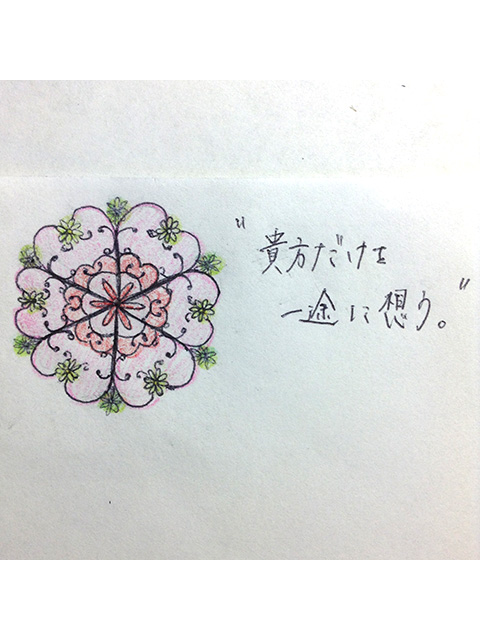 "貴方だけを
一途に想う。"